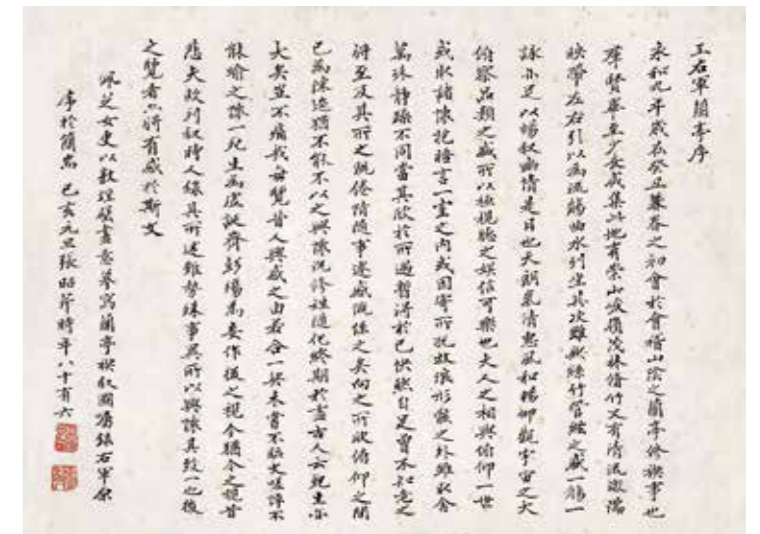 王右軍蘭亭序
永和九年歲在癸丑暮春之初會於會稽山陰之蘭亭修禊事也
羣賢畢至少長咸集此地有崇山峻領茂林脩竹又有清流激湍
映帶左右引以為流觴曲水列坐其次雖無絲竹管絃之盛一觴一
詠亦足以暢敘幽情是日也天朗氣清惠風和暢仰觀宇宙之大
俯察品類之盛所以極視聽之娛信可樂也夫人之相與俯仰一世
或取諸懷抱悟言一室之內或因寄所託放浪形骸之外雖取舍
萬殊靜躁不同當其欣於所遇暫得於己快然自足曾不知老之
將至及其所之既倦情隨事遷感慨係之矣向之所欣俯仰之間
已為陳迹猶不能不以之興懷況修短隨化終期於盡古人云死生亦
大矣豈不痛哉每覽昔人興感之由若合一契未嘗不臨文嗟悼不
能喻之懷一死生為虛誕齊彭殤為妄作後之視今猶今之視昔
悲夫故列敘時人錄其所述雖世殊事異所以興懷其致一也後
之覽者亦將有感於斯文
佩芝女史以數理餘畫意摹寫蘭亭禊敘圖屬錄右軍原
序於簡端 己亥元旦張昭芹時年八十有六